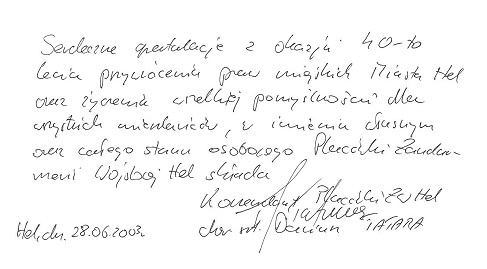 Serdeczne gratulacje z okazji 40-to
lecia przywrócenia praw miejskich Miasta Hel
oraz życzenia wszelkiej pomyślności dla
wszystkich mieszkańców, w imieniu własnym
oraz całego stanu osobowego Placówki Żandar-
merii Wojskowej Hel składa
Komendant Placówki ŻW Hel
chor. szt. Dariusz TATARA
Hel, dn. 28.06.2003r.